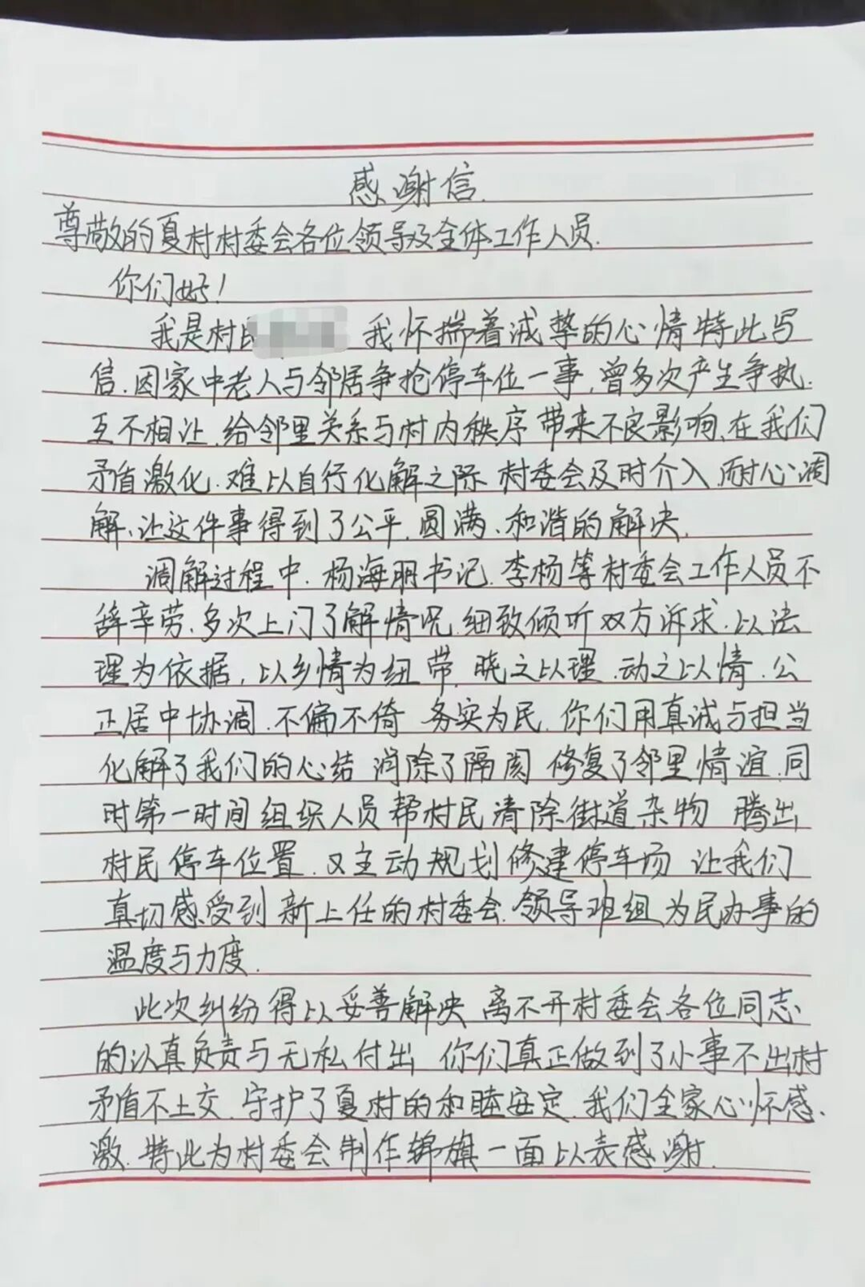 感谢信.
尊敬的夏村村委会各位领导及全体工作人员.
你们好!
我是村民 我怀揣着诚挚的心情特此写
信.因家中老人与邻居争抢停车位一事,曾多次产生争执.
互不相让.给邻里关系与村内秩序带来不良影响,在我们
矛盾激化.难以自行化解之际 村委会及时介入,耐心调
解、让这件事得到了公平.圆满、和谐的解决.
调解过程中.杨海丽书记.李杨等村委会工作人员不
辞辛劳.多次上门了解情况.细致倾听双方诉求.以法
理为依据,以乡情为纽带,晓之以理.动之以情.公
正居中协调.不偏不倚 务实为民.你们用真诚与担当
化解了我们的心结 消除了隔阂 修复了邻里情谊.同
时第一时间组织人员帮村民清除街道杂物 腾出
村民停车位置.又主动规划修建停车场 让我们
真切感受到新上任的村委会.领导班组为民办事的
温度与力度.
此次纠纷得以妥善解决 离不开村委会各位同志
的认真负责与无私付出 你们真正做到了小事不出村
矛盾不上交.守护了夏村的和睦安定.我们全家心怀感
激.特此为村委会制作锦旗一面以表感谢.